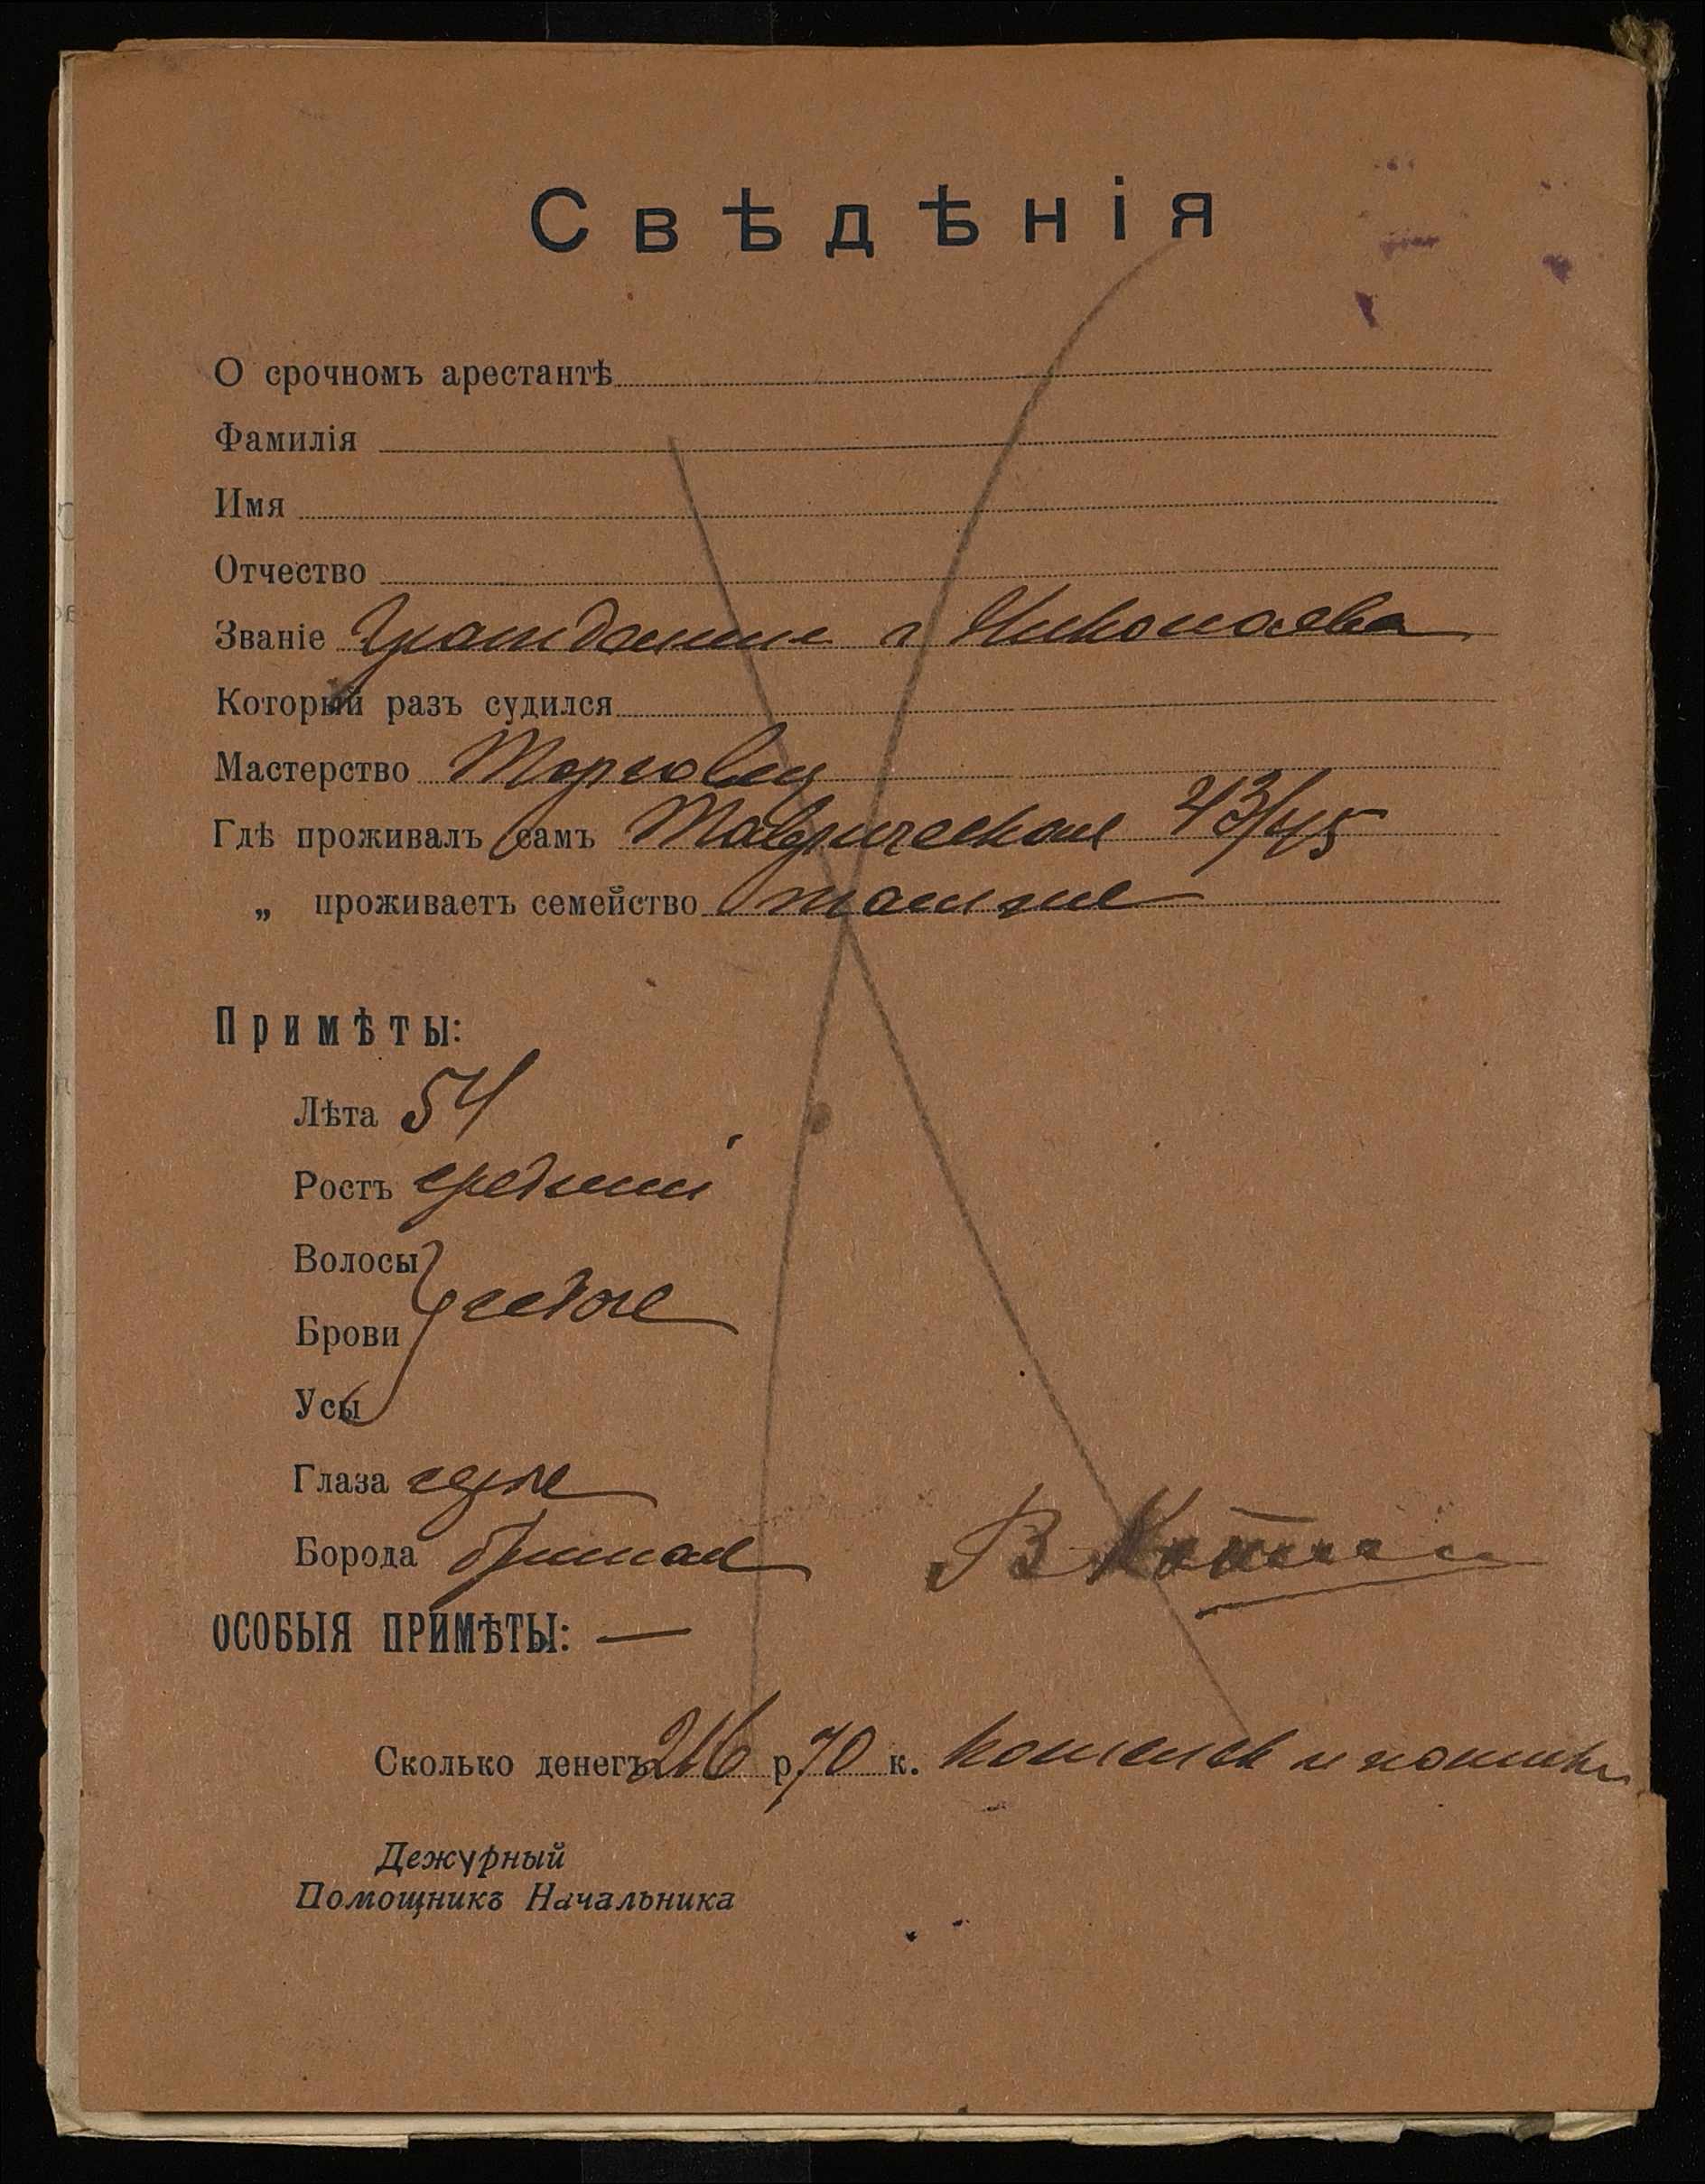 Свѣдѣнія
О срочномъ арестантѣ
Фамилія
Имя
Отчество
Званіе Гражданин г Николаева
Который разъ судился
Мастерство Торговец
Гдѣ проживалъ самъ Таврическая 43/45
„ проживаетъ семейство там же
Примѣты:
Лѣта 54
Ростъ средний
Волосы
Брови седые
Усы
Глаза серые
Борода бритая
ОСОБЫЯ ПРИМѢТЫ: —
Сколько денегъ 216 р. 70 к. кошелек и
Дежурный
Помощникъ Начальника